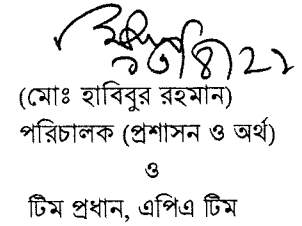 ১৩/৪/২২
(মোঃ হাবিবুর রহমান)
পরিচালক (প্রশাসন ও অর্থ)
ও
টিম প্রধান, এপিএ টিম